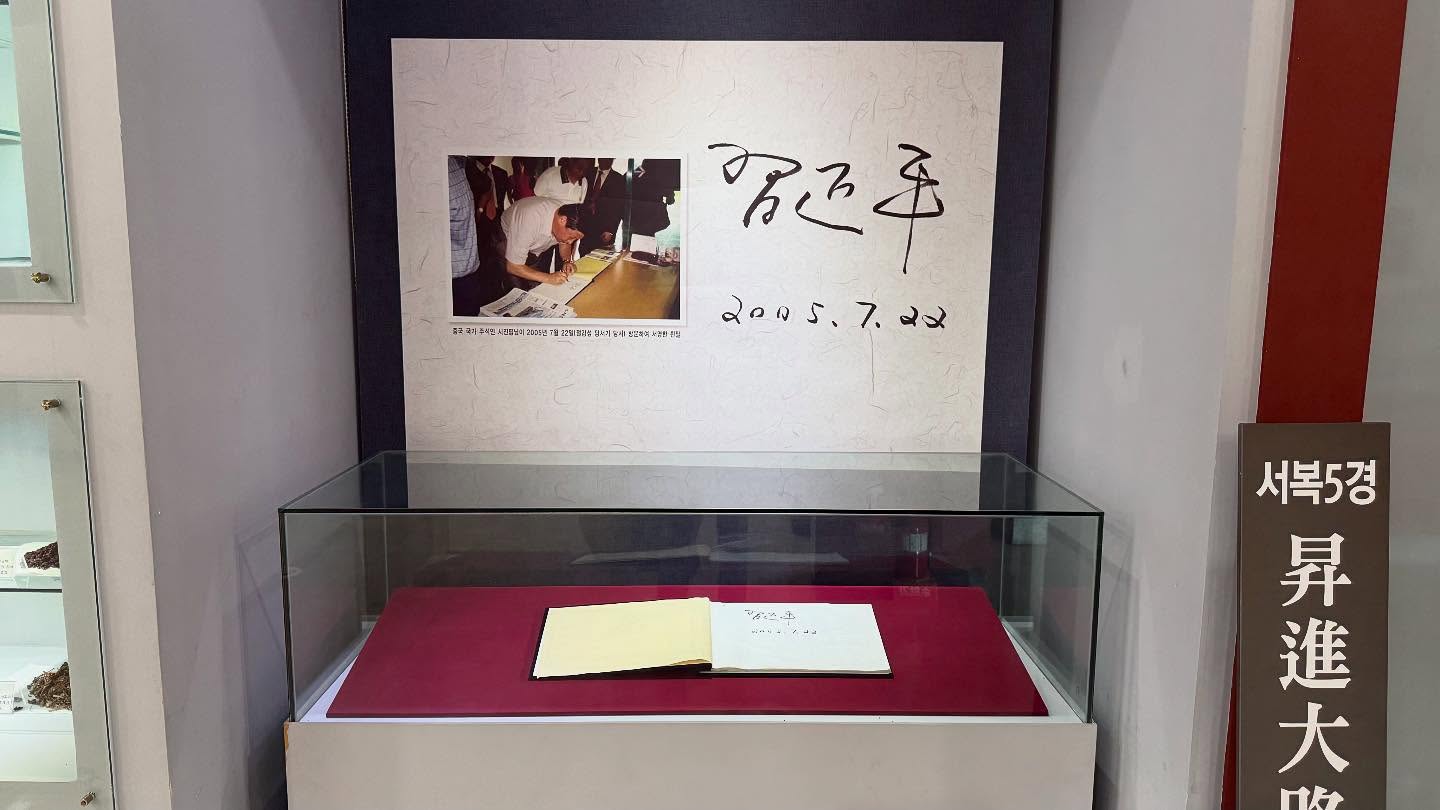 习近平
2005.7.22
중국 국가 주석인 시진핑님이 2005년 7월 22일(절강성 당서기 당시) 방문하여 서명한 친필
习近平
2005.7.22
서복5경
昇
進
大